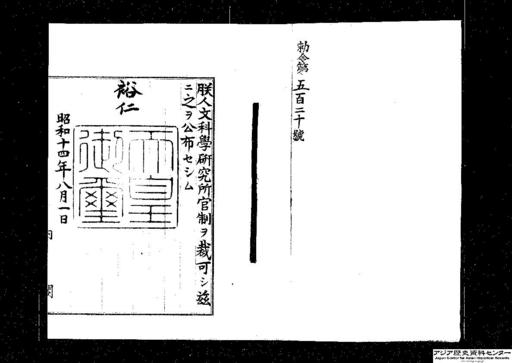 勅令第五百二十號
朕人文科學研究所官制ヲ裁可シ茲
ニ之ヲ公布セシム
裕仁
天皇
御璽
昭和十四年八月一日
内閣
アジア歴史資料センター
Japan Center for Asian Historical Records